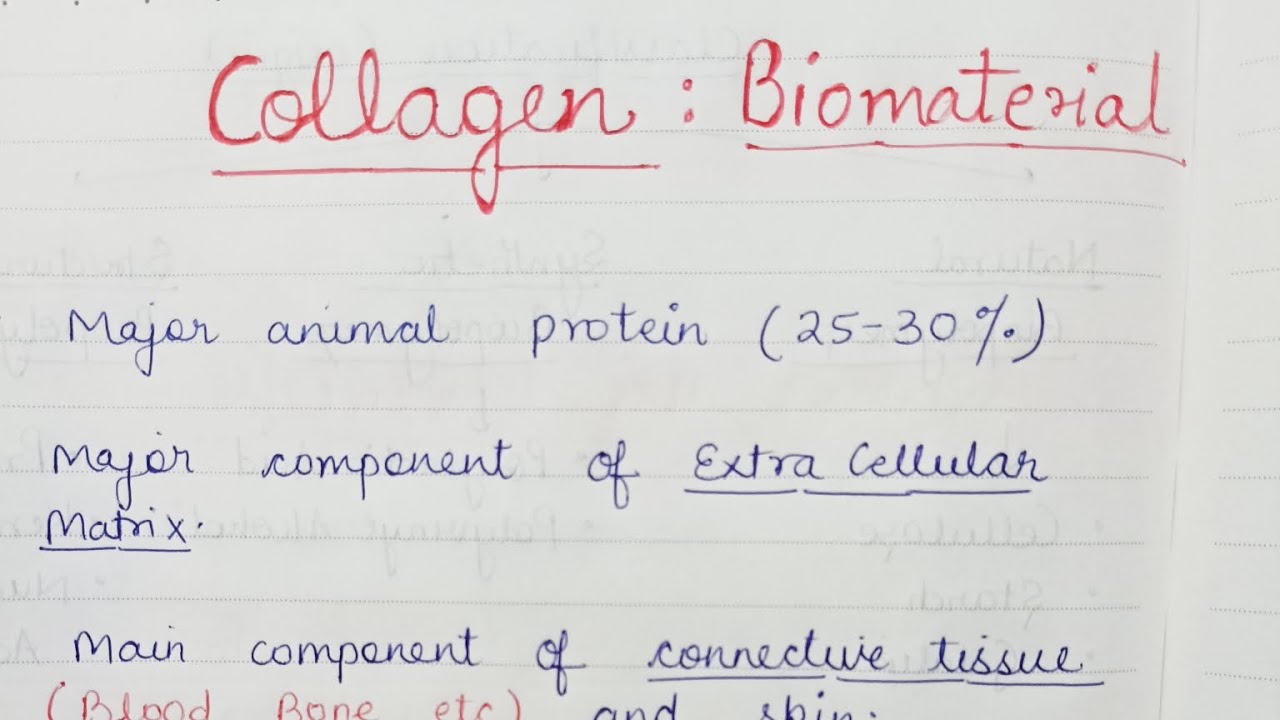 Collagen : Biomaterial
Major animal protein (25-30%)
Major component of Extra Cellular
Matrix.
Main component of connective tissue
(Blood Bone etc) and skin.